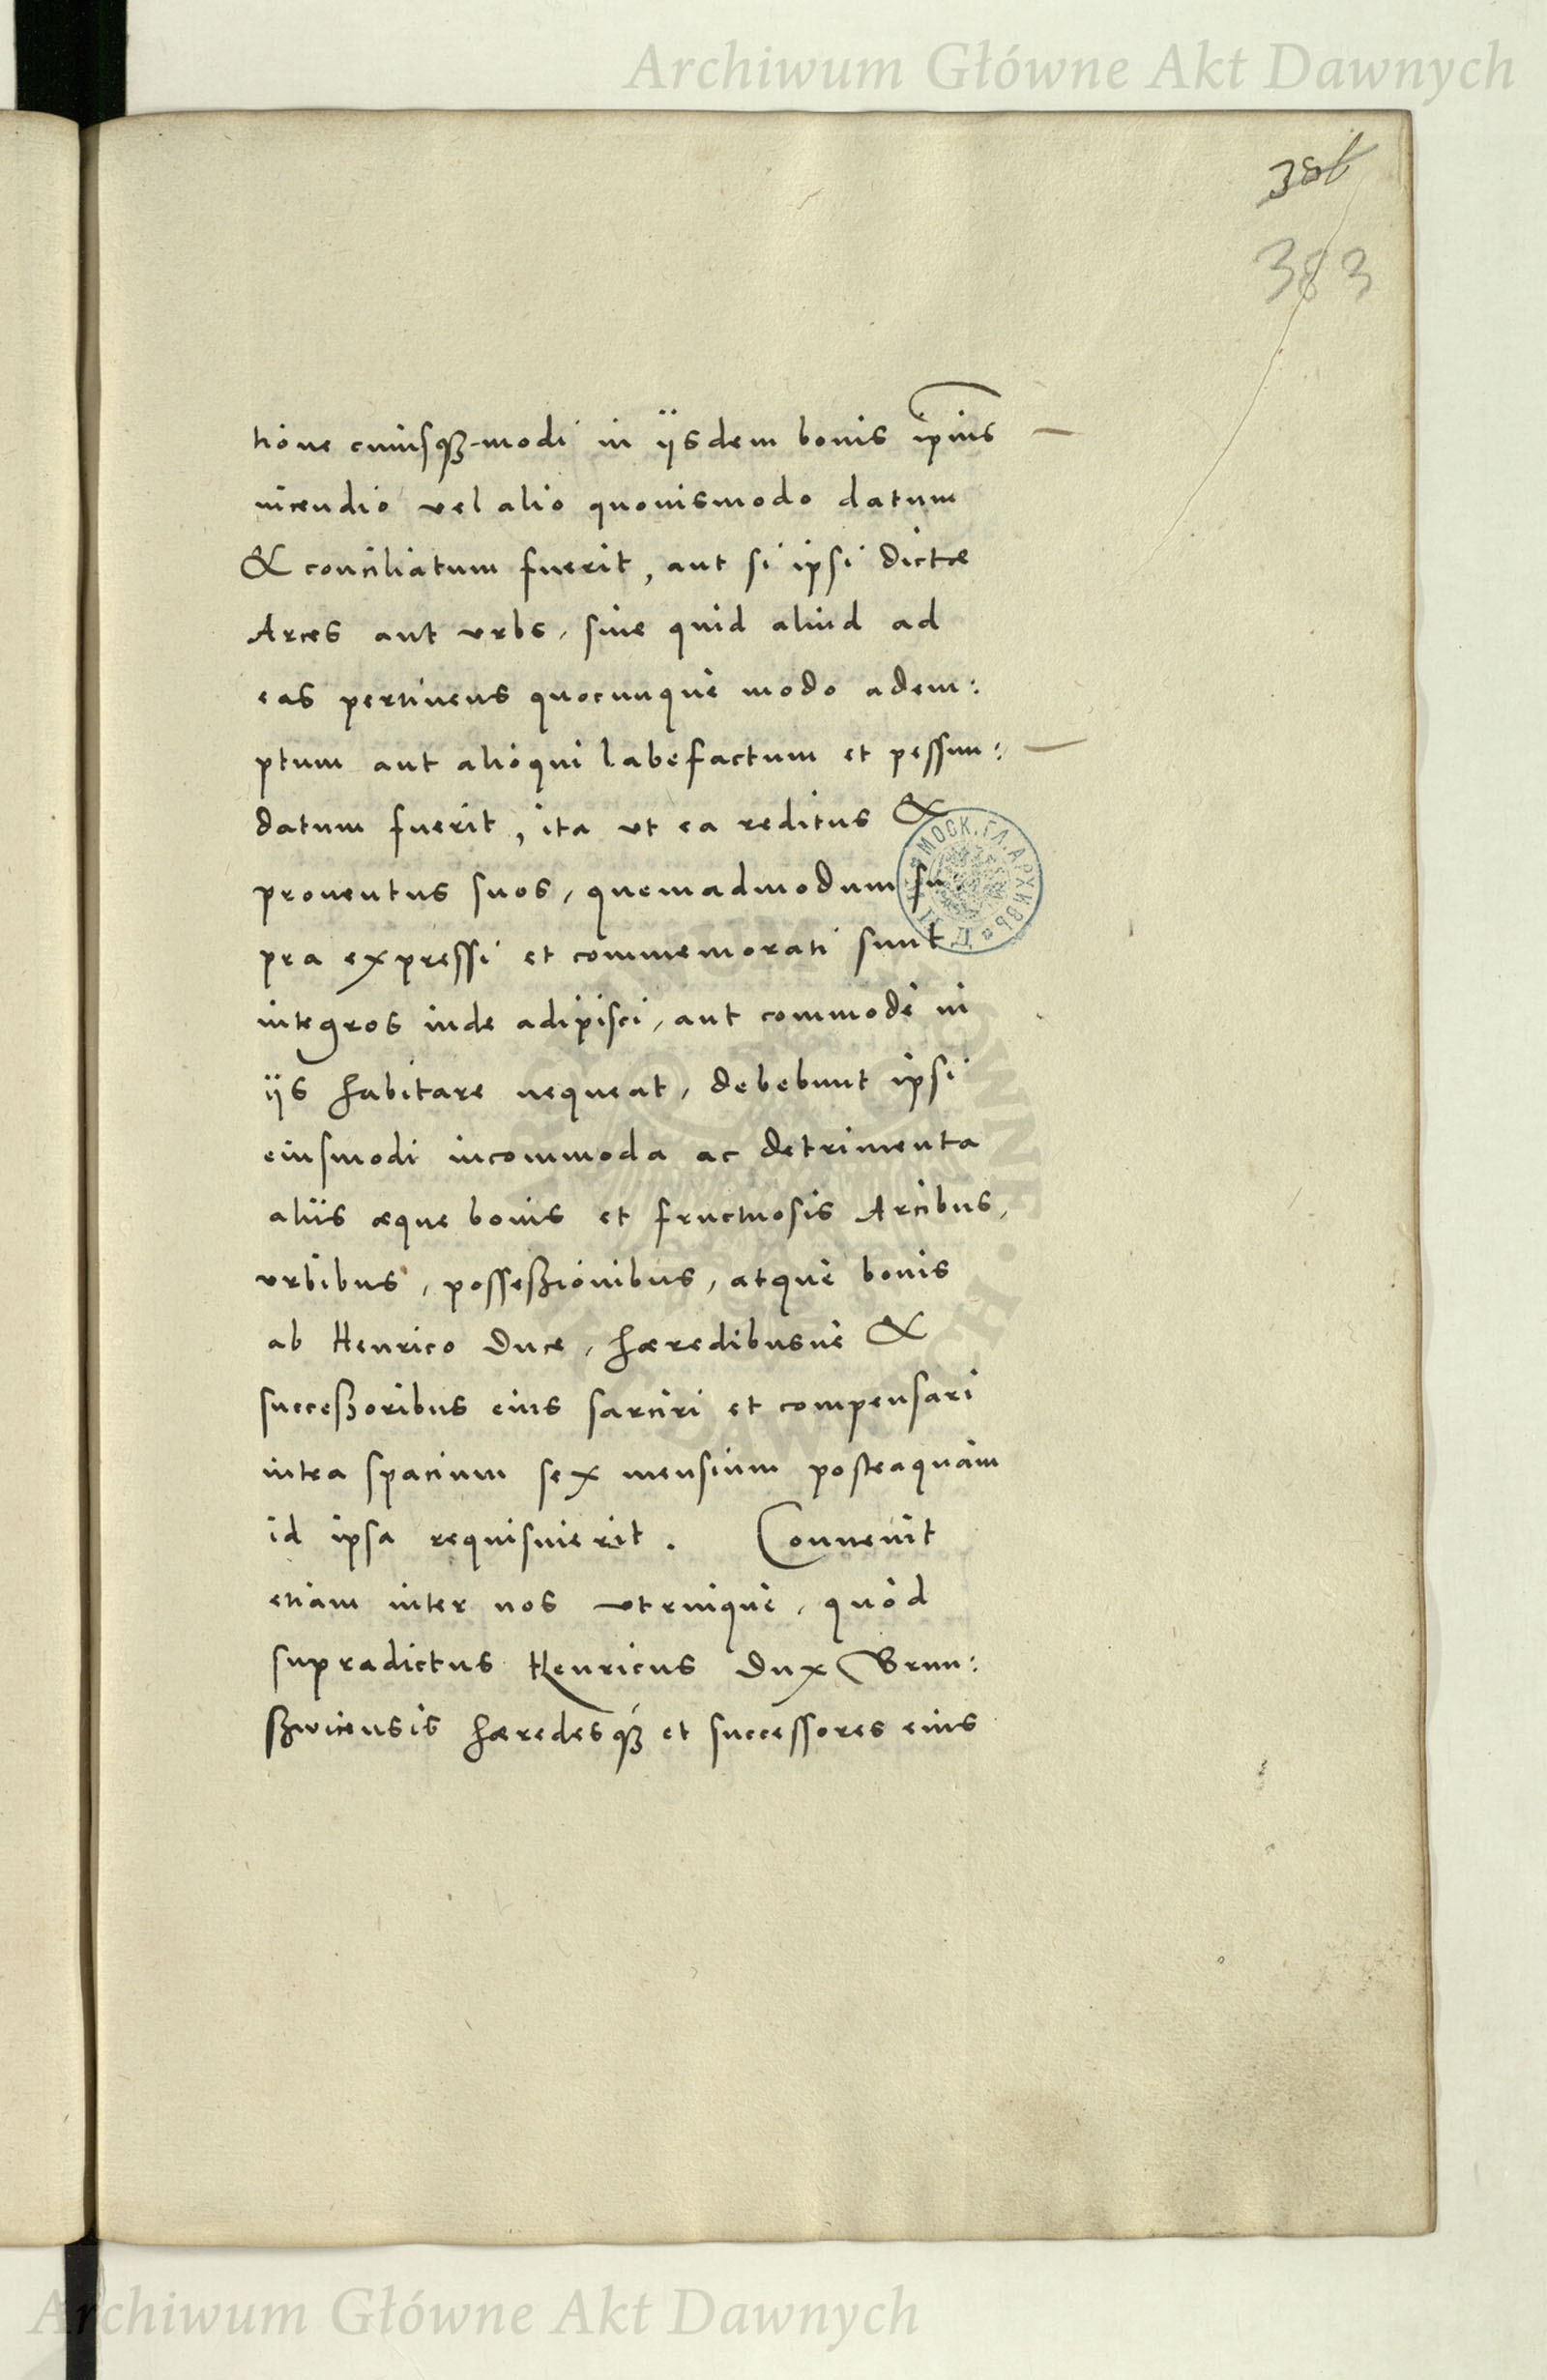 Archiwum Główne Akt Dawnych
386
383
tione cuiusqꝫ-modi in ijsdem bonis ip̅ius
incendio vel alio quouismodo datum
& conciliatum fuerit, aut si ipsi dictæ
Arces aut vrbs, siue quid aliud ad
eas pertinens quocunque modo adem:
ptum aut alioqui labefactum et pessun:
datum fuerit, ita vt ea reditus &
prouentus suos, quemadmodum su:
pra expressi et commemorati sunt
integros inde adipisci, aut commodè in
ijs habitare nequeat, debebunt ipsi
eiusmodi incommoda ac detrimenta
aliis æque bonis et fructuosis Arcibus,
vrbibus, possesßionibus, atque bonis
ab Henrico Duce, hæredibusue &
succesßoribus eius sarciri et compensari
intra spacium sex mensium posteaquam
id ipsa requisuierit. Conuenit
etiam inter nos vtrinque, quòd
supradictus Henricus Dux Brun:
ßwicensis hæredesqꝫ et successores eius
МОСК. ГЛ. АРХИВЪ
Archiwum Główne Akt Dawnych